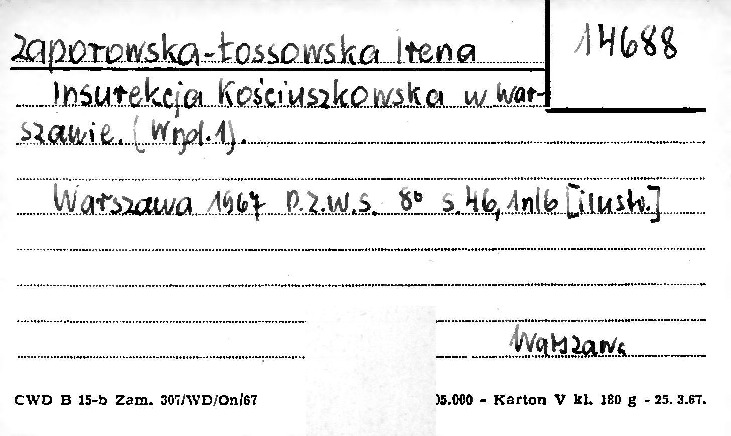 14688
Zaporowska-Łossowska Irena
Insurekcja Kościuszkowska w War-
szawie. (Wyd. 1).
Warszawa 1967 P.Z.W.S. 8° s.46, 1nlb [ilustr.]
Warszawa
CWD B 15-b Zam. 307/WD/On/67 05.000 - Karton V kl. 180 g - 25. 3.67.